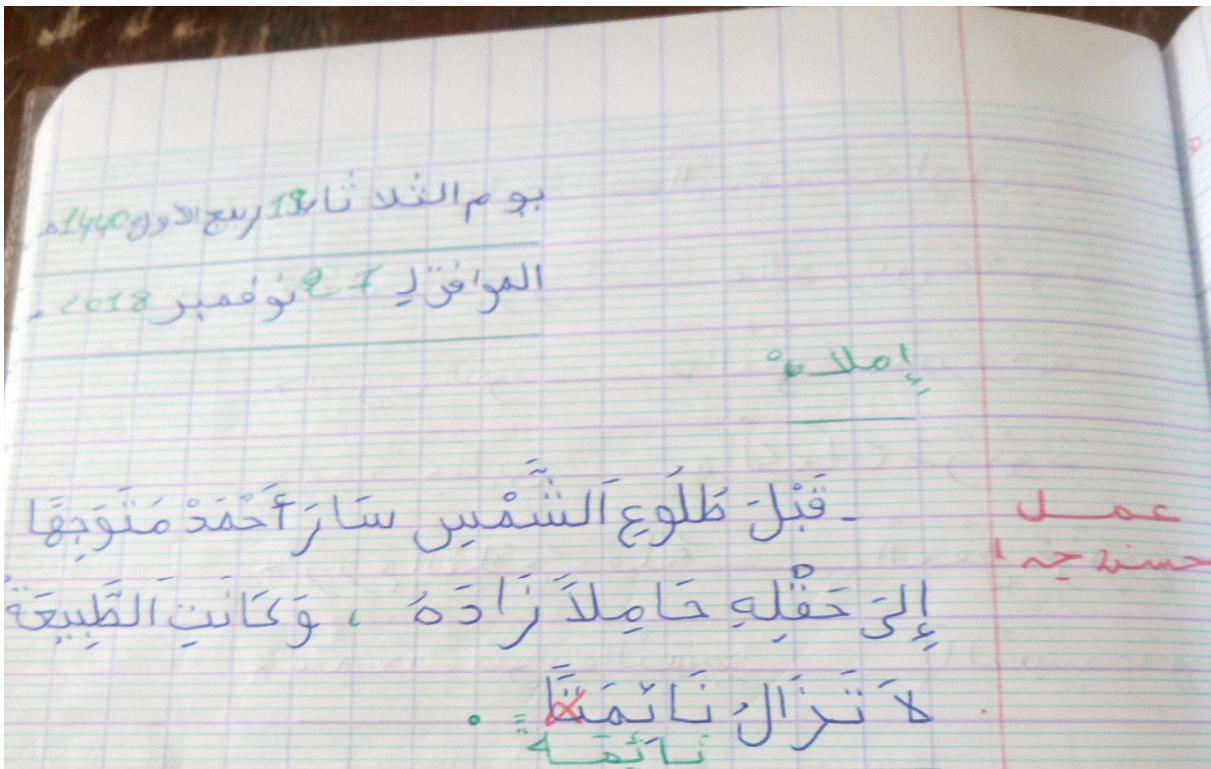 يوم الثلاثاء 19 ربيع الاول 1440ه
الموافق ل 27 نوفمبر 2018.
إملاء:
قَبْلَ طُلُوعِ الشَّمْسِ سَارَ أَحْمَدْ مُتَوَجِهًا
عمل
حسن جدا
إِلَى حَقْلِهِ حَامِلاً زَادَهُ ، وَكَانَتِ الطَّبِيعَةُ
لاَ تَزَالُ نَائمَتًا .
نائمة